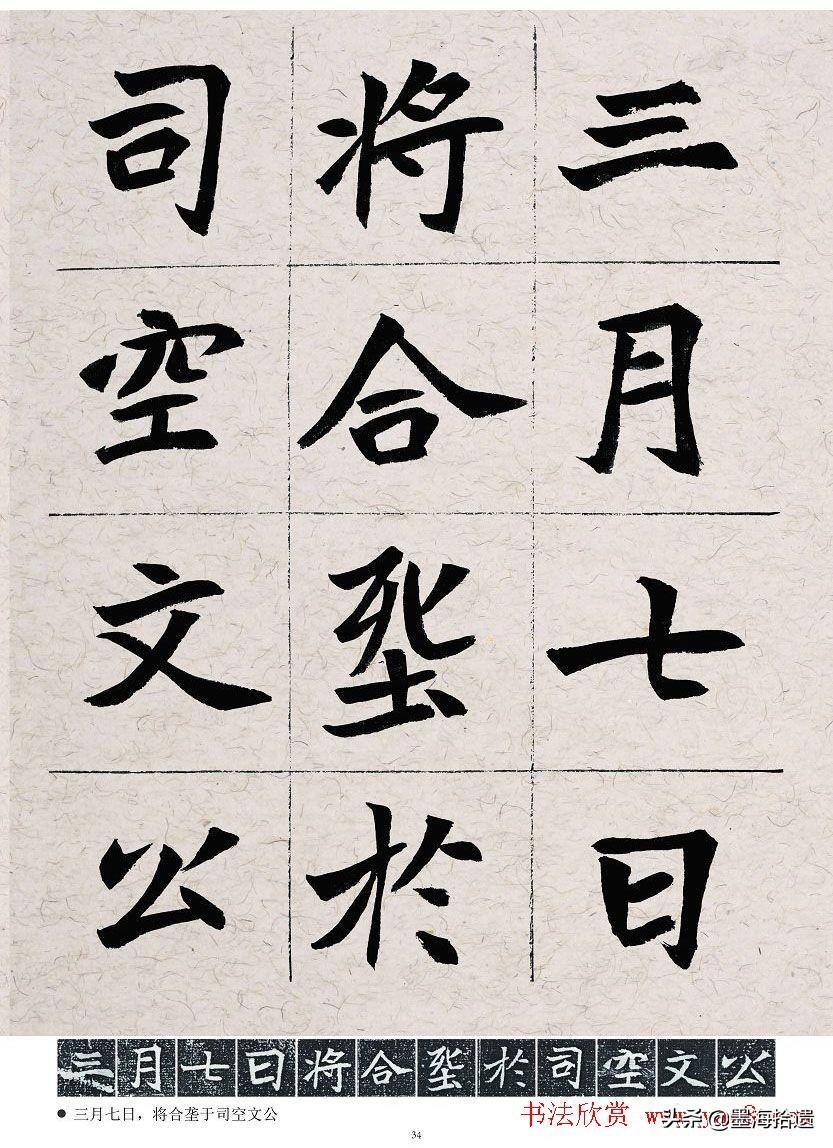 三月七日
将合於
司空文公
三月七日将合於司空文公
● 三月七日，将合垄于司空文公
书法欣赏
头条@墨海拾遗
34